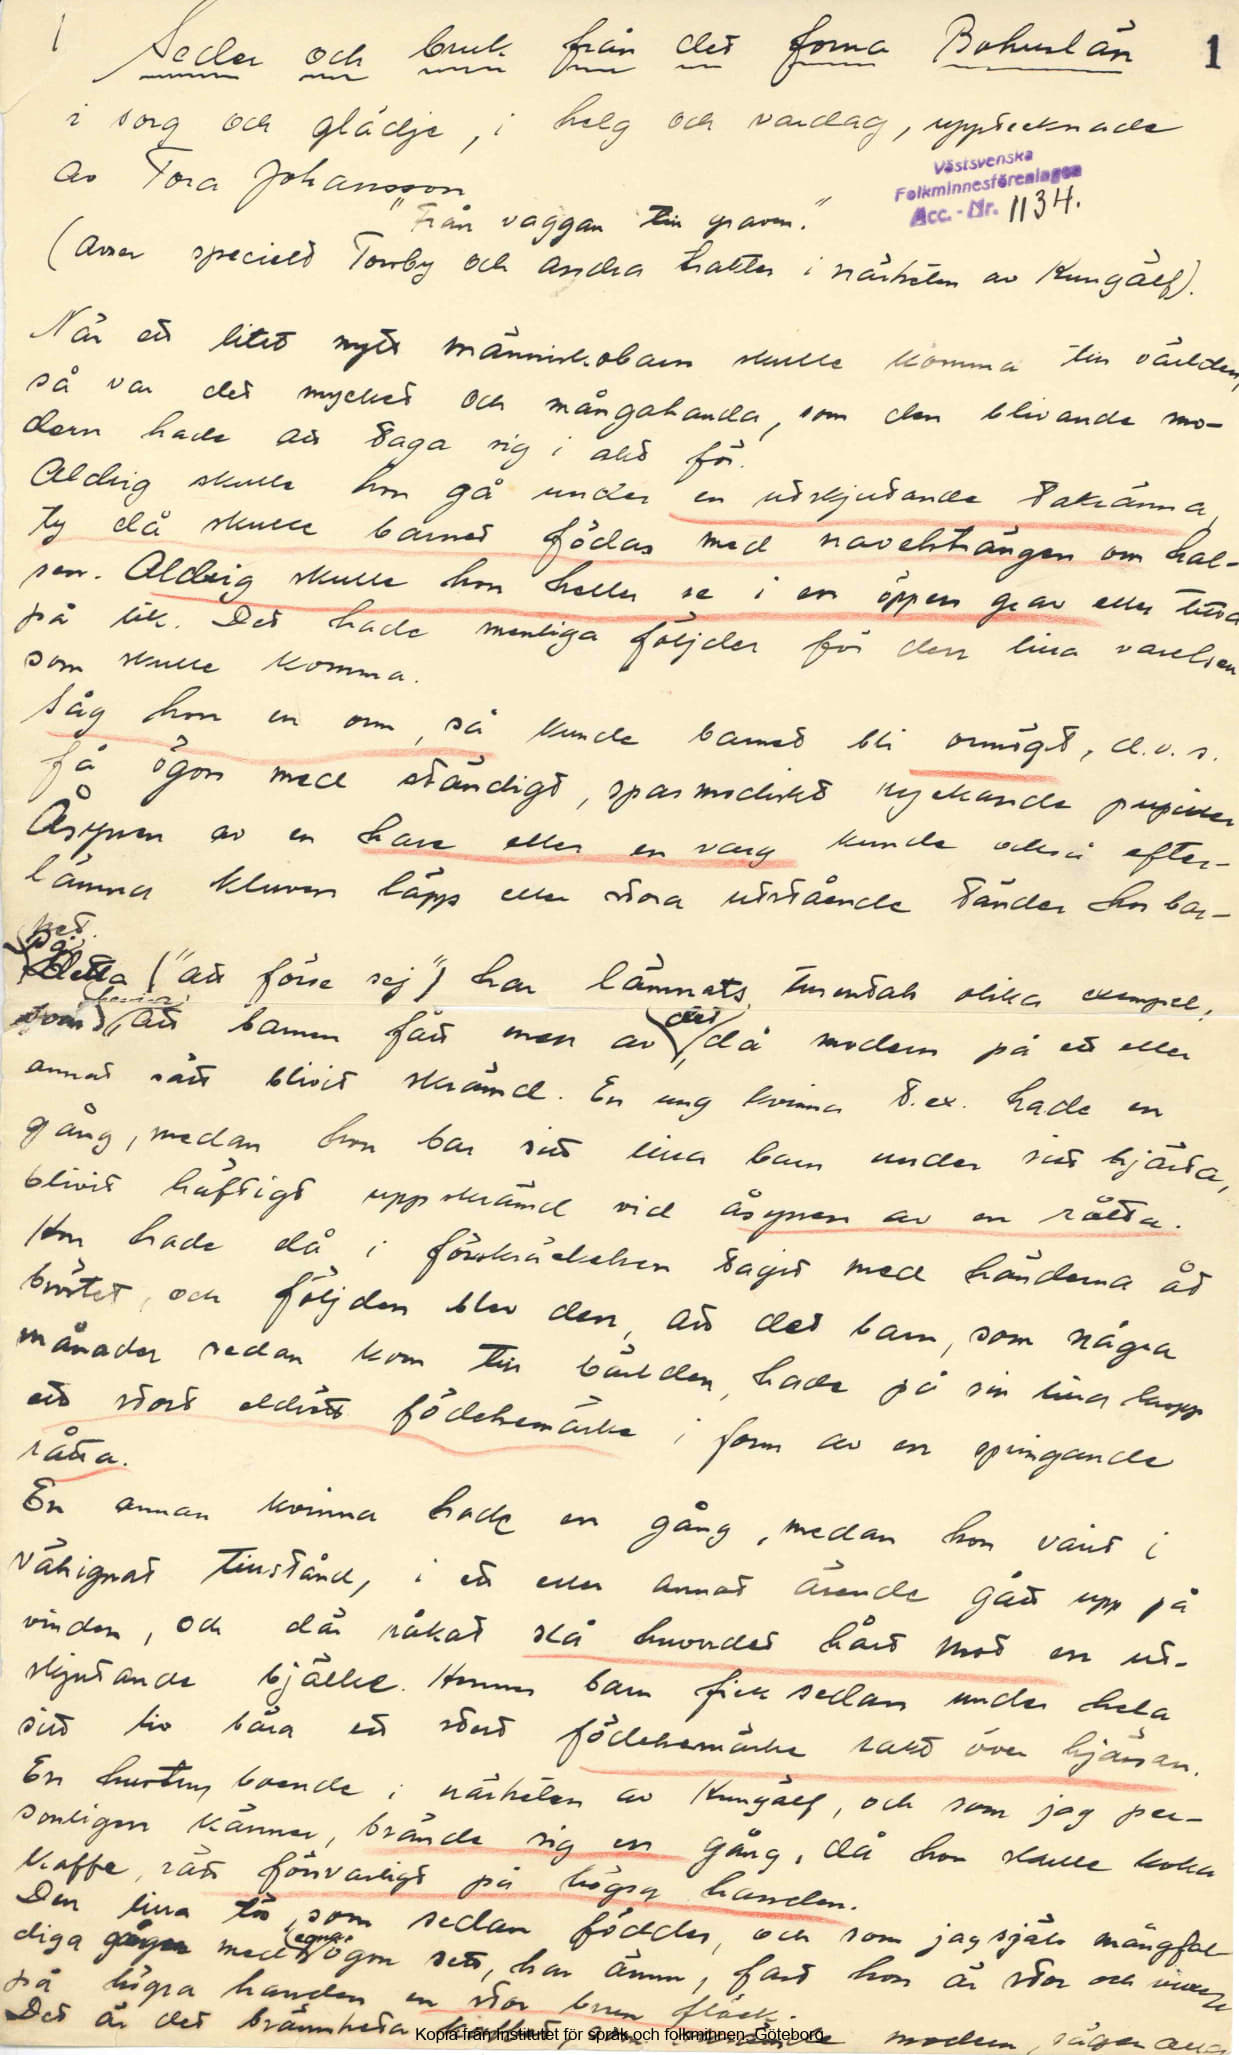 1
Seder och bruk från det forna Bohuslän
i sorg och glädje, i helg och vardag, upptecknade
av Tora Johansson
Västsvenska
Folkminnesföreningen
Acc.-Nr. 1134.
"Från vaggan till graven."
(avser speciellt Torsby och andra trakter i närheten av Kungälf).
När ett litet nytt människobarn skulle komma till världen,
så var det mycket och mångahanda, som den blivande mo-
dern hade att taga sig i akt för.
Aldrig skulle hon gå under en utskjutande takränna,
ty då skulle barnet födas med navelsträngen om hal-
sen. Aldrig skulle hon heller se i en öppen grav eller titta
på lik. Det hade menliga följder för den lilla varelsen
som skulle komma.
Såg hon en orm, så kunde barnet bli ormögt, d.v.s.
få ögon med ständigt, spasmodiskt ryckande pupiller
Åsynen av en hare eller en varg kunde också efter-
lämna kluven läpp eller stora utstående tänder hos bar-
net.
På detta ("att förse sej") har lämnats tusentals olika exempel,
att barnen fått men av det, då modern på ett eller
annat sätt blivit skrämd. En ung kvinna t.ex. hade en
gång, medan hon bar sitt lilla barn under sitt hjärta,
blivit häftigt uppskrämd vid åsynen av en råtta.
Hon hade då i förskräckelsen tagit med händerna åt
bröstet, och följden blev den, att det barn, som några
månader sedan kom till världen, hade på sin lilla kropp
ett stort eldrött födelsemärke i form av en springande
råtta.
En annan kvinna hade en gång, medan hon varit i
välsignat tillstånd, i ett eller annat ärende gått upp på
vinden, och där råkat slå huvudet hårt mot en ut-
skjutande bjälke. Hennes barn fick sedan under hela
sitt liv bära ett stort födelsemärke rakt över hjässan.
En hustru boende i närheten av Kungälf, och som jag per-
sonligen känner, brände sig en gång, då hon skulle koka
kaffe, rätt försvarligt på högra handen.
Den lilla tös, som sedan föddes, och som jag själv mångfal
diga gånger med egna ögon sett, har ännu, fast hon är stor och
på högra handen en stor brun fläck.
Det är det brännheta modern, säger
Kopia från Institutet för språk och folkminnen, Göteborg